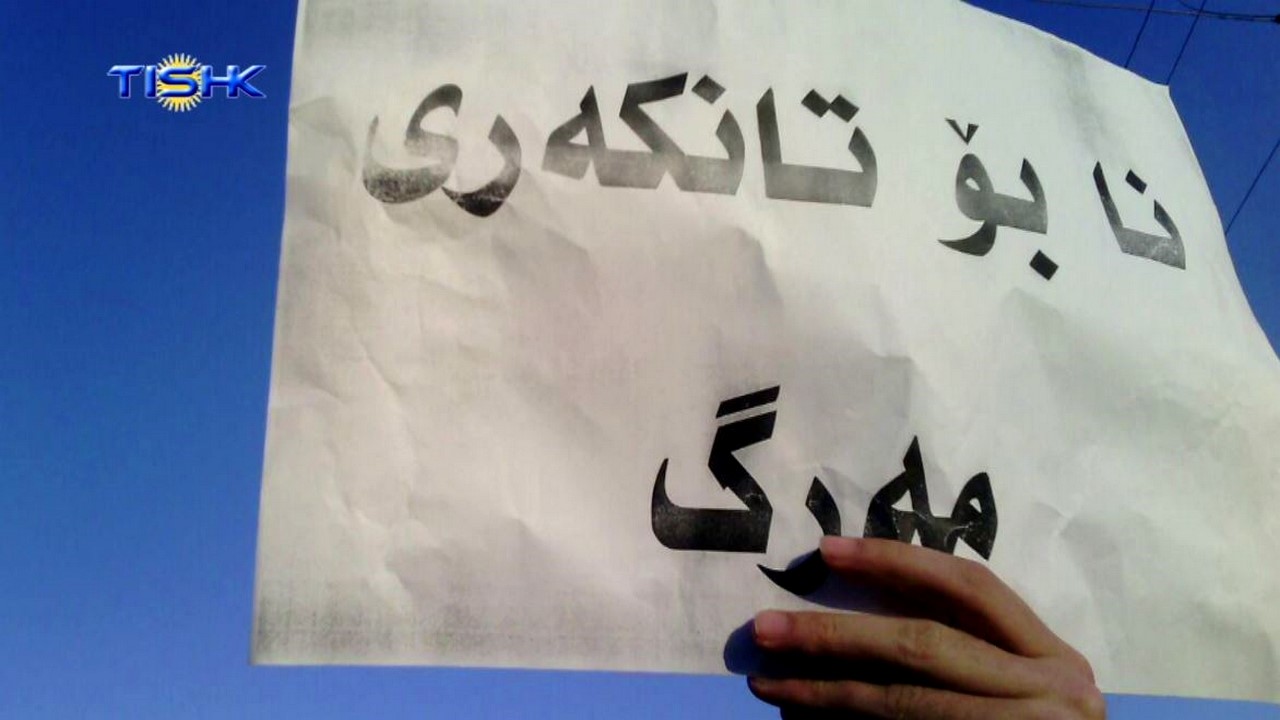 TISHK
نا بۆ تانکەری
مەرگ